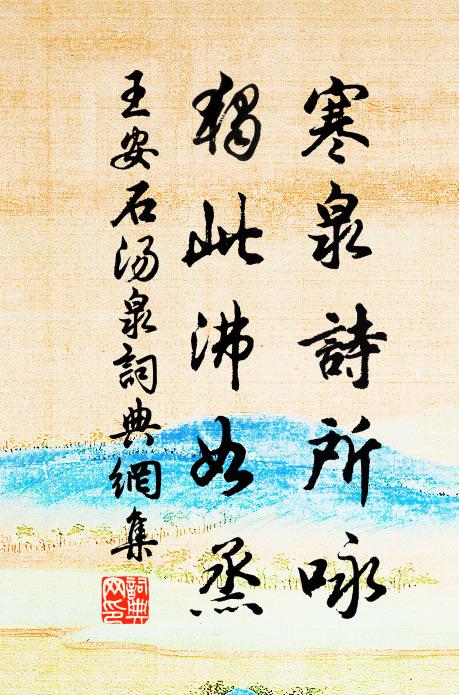 寒泉詩所咏
獨此沸如蒸
王安石汤泉詞典網集
詞典网印